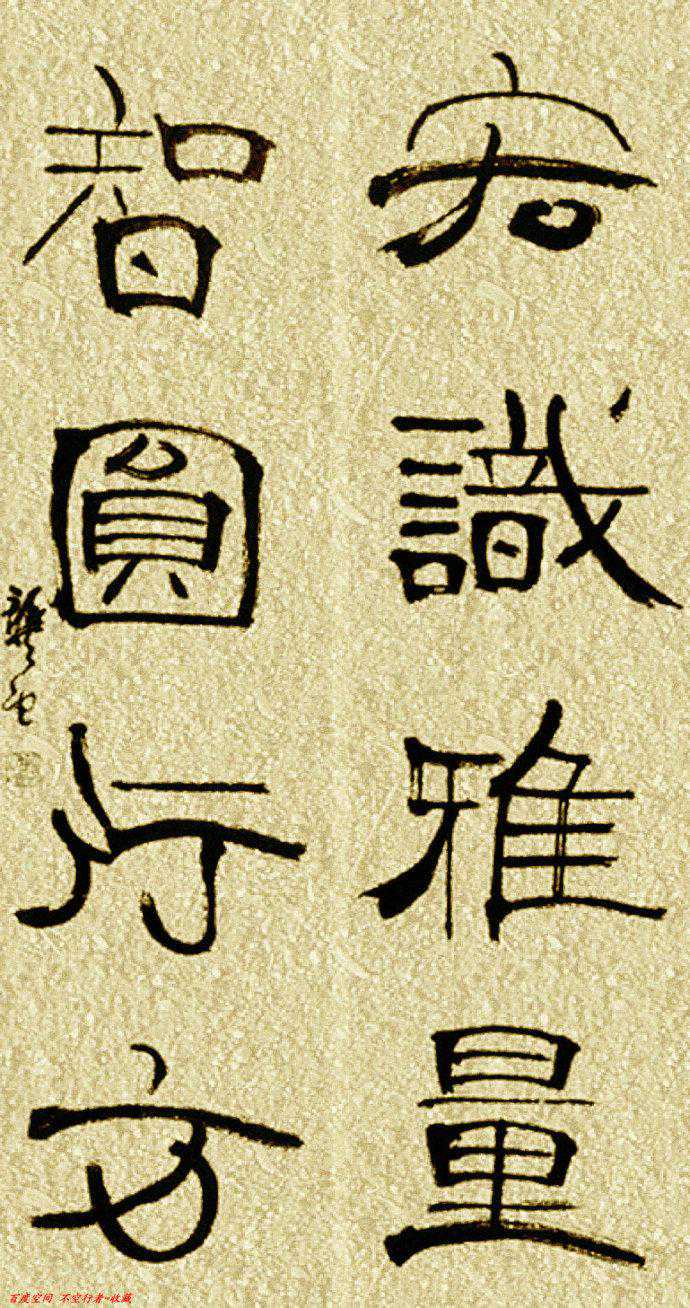 宏識雅量
智圓行方
龔望
百度空间 不空行者~收藏